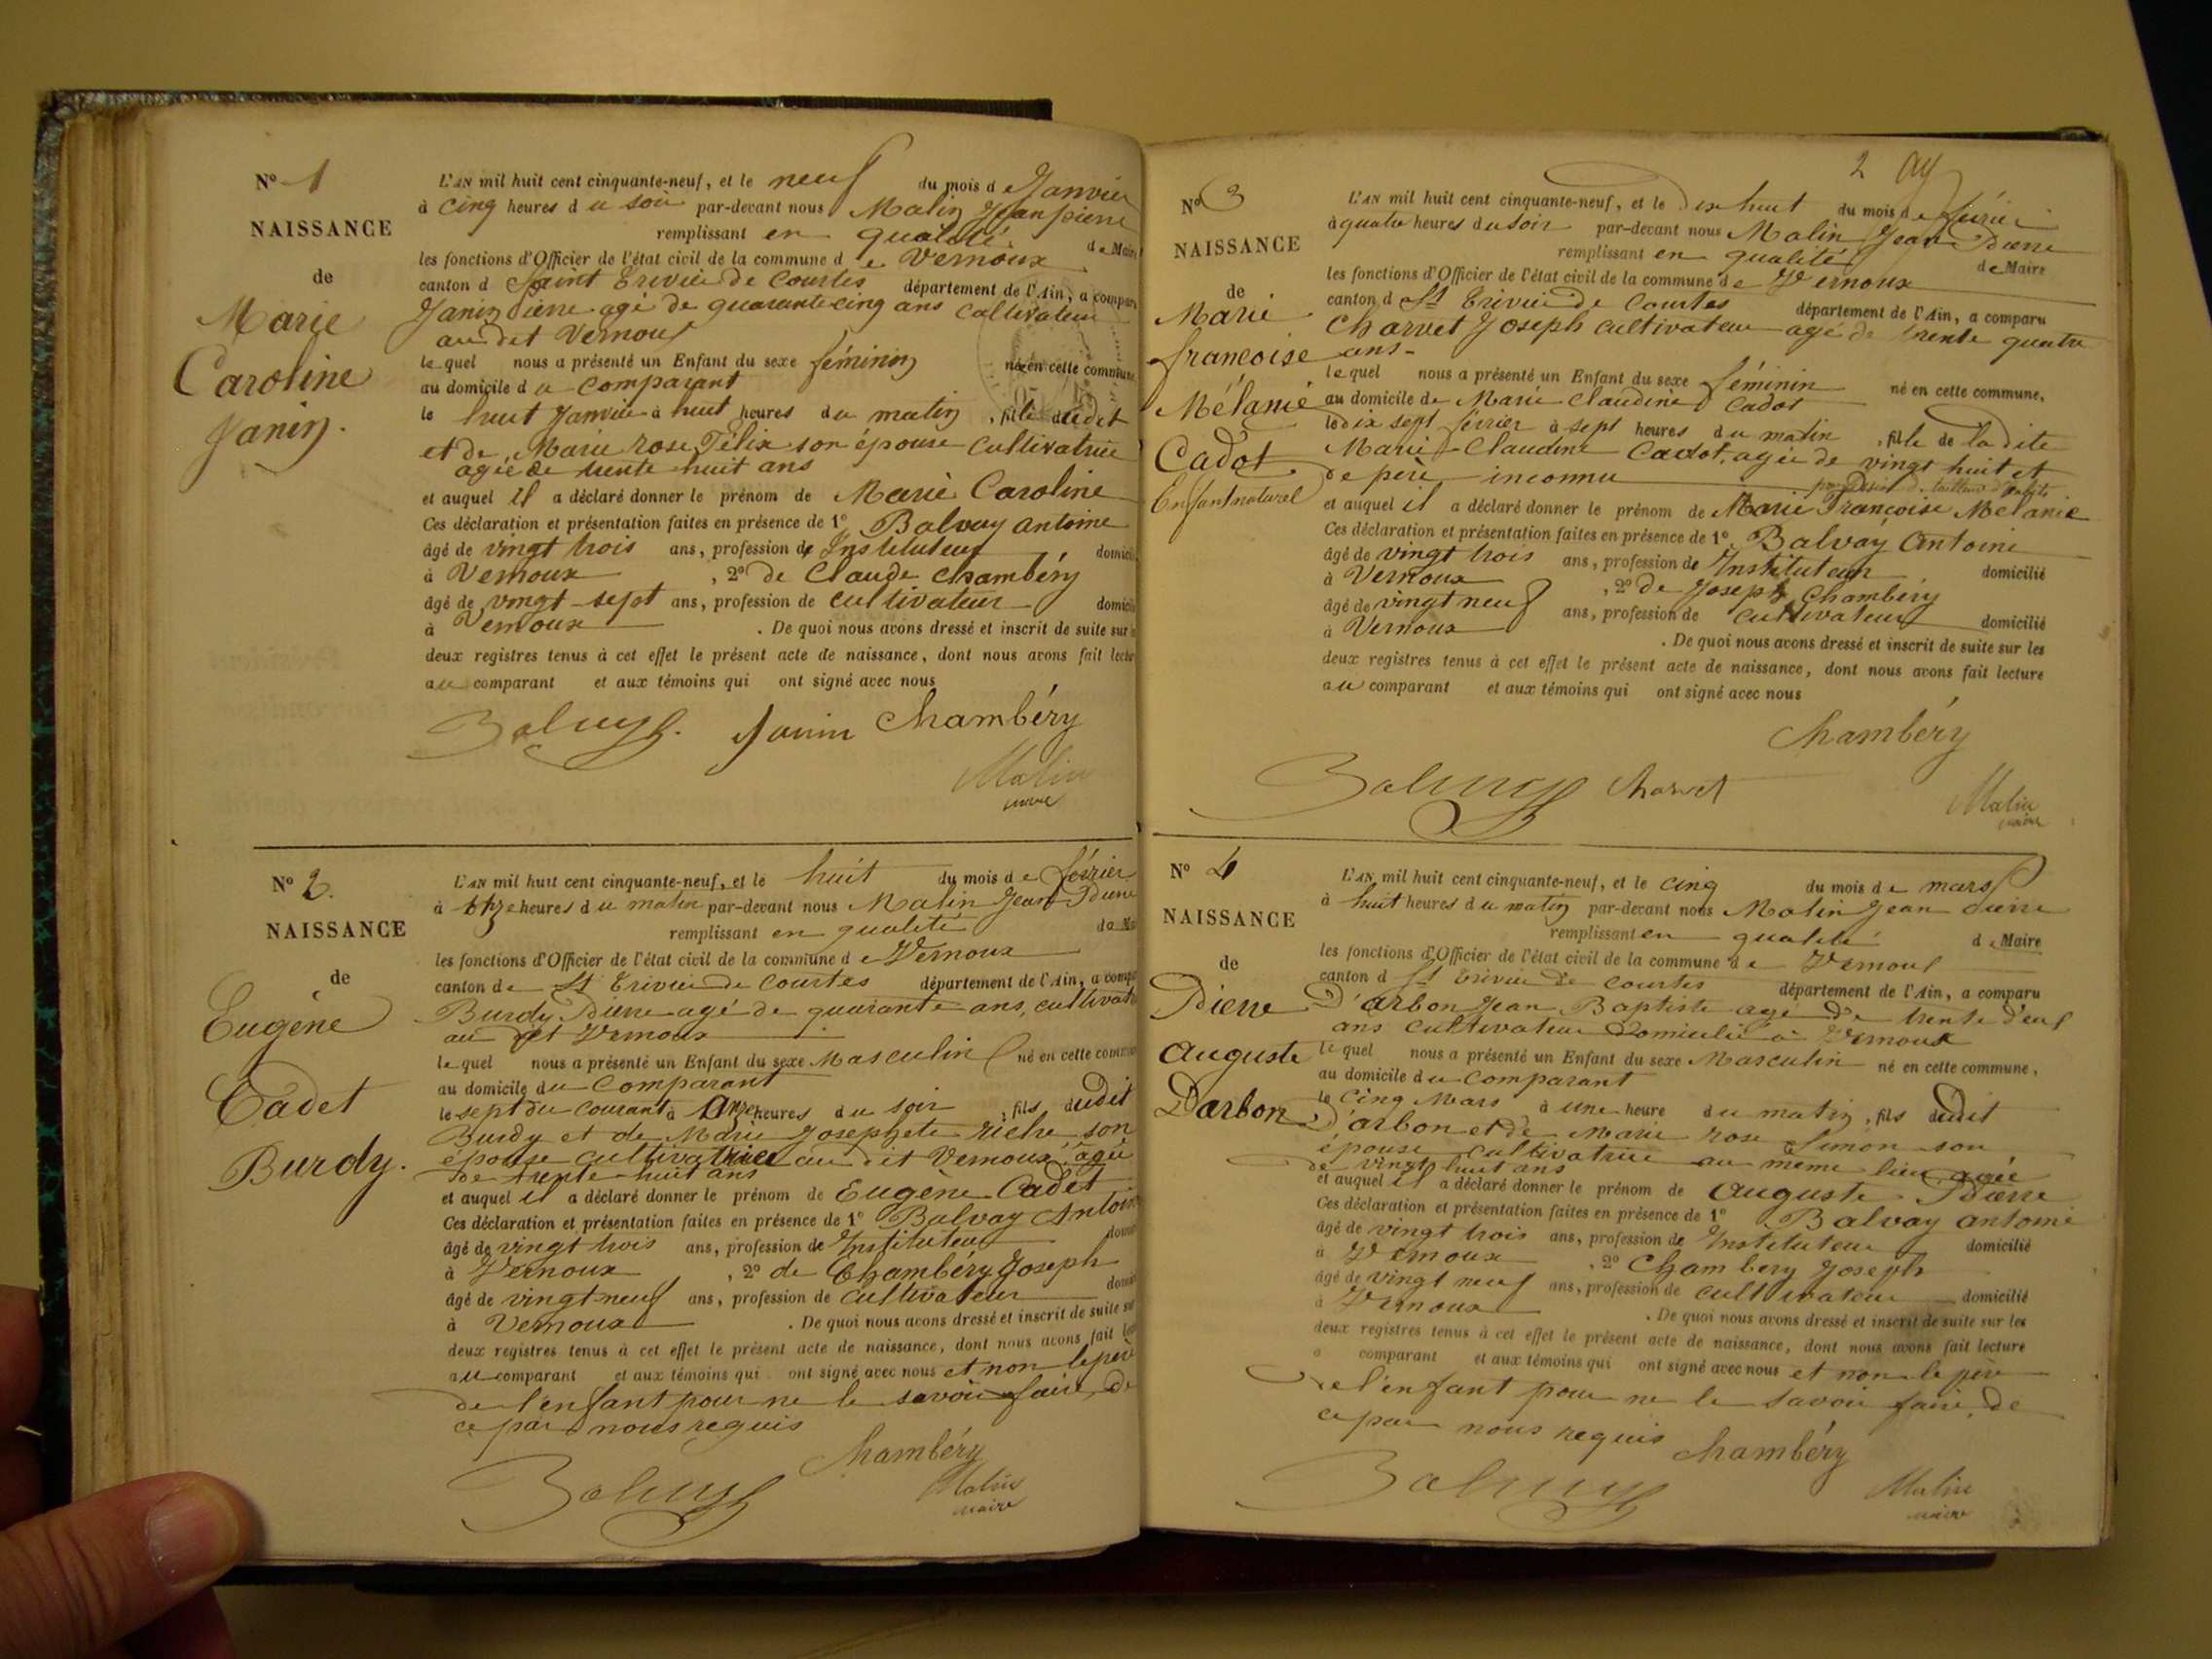 No 1
NAISSANCE
de
Marie
Caroline
Janin.
L'AN mil huit cent cinquante-neuf, et le neuf du mois de Janvier
à cinq heures du soir par-devant nous Malin Jean pierre
remplissant en qualité de Maire
les fonctions d'Officier de l'état civil de la commune de Vernoux
canton d Saint Trivier de Courtes département de l'Ain, a comparu
Janin pierre agé de quarante cinq ans cultivateur
au dit Vernoux
lequel nous a présenté un Enfant du sexe féminin né en cette commune
au domicile du comparant
le huit Janvier à huit heures du matin, fille dudit
et de Marie rose Félix son épouse cultivatrice
agée de trente huit ans
et auquel il a déclaré donner le prénom de Marie Caroline
Ces déclaration et présentation faites en présence de 1o Balvay antoine
âgé de vingt trois ans, profession de Instituteur domicilié
à Vernoux, 2o de Claude Chambéry
âgé de vingt-sept ans, profession de cultivateur domicilié
à Vernoux. De quoi nous avons dressé et inscrit de suite sur
deux registres tenus à cet effet le présent acte de naissance, dont nous avons fait lecture
au comparant et aux témoins qui ont signé avec nous
Balvay. Janin Chambéry
Malin
maire
No 2.
NAISSANCE
de
Eugène
Cadet
Burdy.
L'AN mil huit cent cinquante-neuf, et le huit du mois de février
à onze heures du matin par-devant nous Malin Jean Pierre
remplissant en qualité de
les fonctions d'Officier de l'état civil de la commune de Vernoux
canton de St Trivier de Courtes département de l'Ain, a compa
Burdy Pierre agé de quarante ans, cultivat
au dit Vernoux
lequel nous a présenté un Enfant du sexe Masculin né en cette commune
au domicile du Comparant
le sept du courant à onze heures du soir, fils dudit
Burdy et de Marie Josephete riche son
épouse cultivatrice au dit Vernoux, agée
de trente-huit ans
et auquel il a déclaré donner le prénom de Eugène Cadet
Ces déclaration et présentation faites en présence de 1o Balvay Antoine
âgé de vingt trois ans, profession de Instituteur domi
à Vernoux, 2o de Chambéry Joseph
âgé de vingt-neuf ans, profession de cultivateur domi
à Vernoux. De quoi nous avons dressé et inscrit de suite sur
deux registres tenus à cet effet le présent acte de naissance, dont nous avons fait
au comparant et aux témoins qui ont signé avec nous et non le père
de l'enfant pour ne le savoir faire, de
ce par nous requis
Chambéry
Balvay Malin
maire
2
No 3
NAISSANCE
de
Marie
francoise
Mélanie
Cadot
Enfant naturel
L'AN mil huit cent cinquante-neuf, et le dix huit du mois de février
à quatre heures du soir par-devant nous Malin Jean Pierre
remplissant en qualité de Maire
les fonctions d'Officier de l'état civil de la commune de Vernoux
canton d St Trivier de Courtes département de l'Ain, a comparu
Charvet Joseph cultivateur agé de trente quatre
ans-
lequel nous a présenté un Enfant du sexe féminin né en cette commune,
au domicile de Marie Claudine Cadot
le dix sept février à sept heures du matin, fille de la dite
Marie Claudine Cadot, agée de vingt huit et
de père inconnu
et auquel il a déclaré donner le prénom de Marie Françoise Mélanie
Ces déclaration et présentation faites en présence de 1o Balvay Antoine
âgé de vingt trois ans, profession de Instituteur domicilié
à Vernoux, 2o de Joseph Chambéry
âgé de vingt neuf ans, profession de cultivateur domicilié
à Vernoux. De quoi nous avons dressé et inscrit de suite sur les
deux registres tenus à cet effet le présent acte de naissance, dont nous avons fait lecture
au comparant et aux témoins qui ont signé avec nous
Chambéry
Balvay Charvet Malin
maire
No 4
NAISSANCE
de
Pierre
auguste
Darbon
L'AN mil huit cent cinquante-neuf, et le cinq du mois de mars
à huit heures du matin par-devant nous Malin Jean pierre
remplissant en qualité de Maire
les fonctions d'Officier de l'état civil de la commune de Vernoux
canton d St Trivier de courtes département de l'Ain, a comparu
D'arbon Jean Baptiste agé de trente deux
ans cultivateur Domicilié à Vernoux
lequel nous a présenté un Enfant du sexe Masculin né en cette commune,
au domicile du comparant
le cinq Mars à une heure du matin, fils dudit
D'arbon et de Marie rose Simon son
épouse cultivatrice au même lieu agée
de vingt huit ans
et auquel il a déclaré donner le prénom de auguste Pierre
Ces déclaration et présentation faites en présence de 1o Balvay antoine
âgé de vingt trois ans, profession de Instituteur domicilié
à Vernoux, 2o Chambery Joseph
âgé de vingt neuf ans, profession de cultivateur domicilié
à Vernoux. De quoi nous avons dressé et inscrit de suite sur les
deux registres tenus à cet effet le présent acte de naissance, dont nous avons fait lecture
a comparant et aux témoins qui ont signé avec nous et non le père
de l'enfant pour ne le savoir faire, de
ce par nous requis Chambéry
Balvay Malin
maire